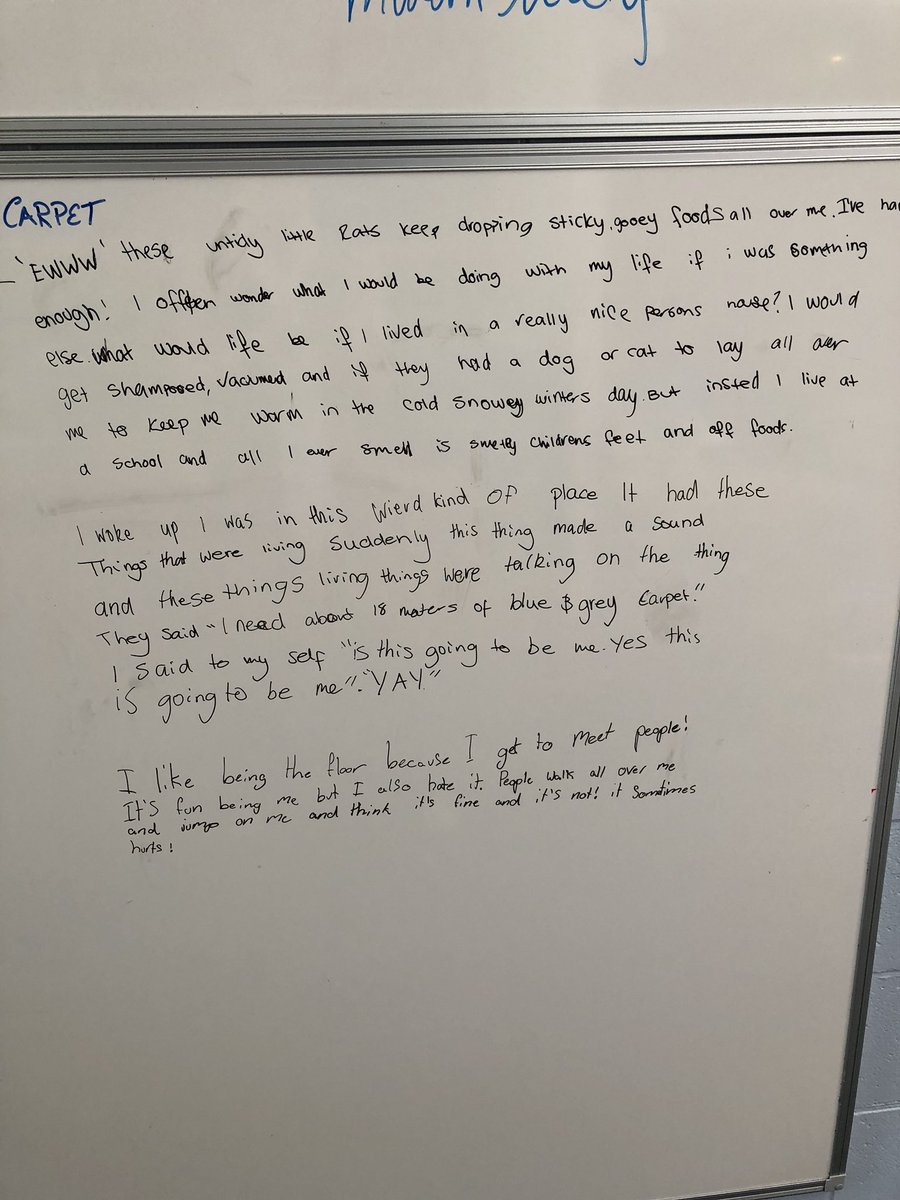 CARPET
- 'EWWW' these untidy little Rats keep dropping sticky, gooey foods all over me. I've ha
enough! I offten wonder what I would be doing with my life if i was something
else. what would life be if I lived in a really nice persons house? I would
get shampooed, vacumed and if they had a dog or cat to lay all over
me to keep me worm in the cold snowey winters day. But insted I live at
a school and all I ever smell is smelly childrens feet and off foods.
I woke up I was in this wierd kind of place It had these
Things that were living Suddenly this thing made a sound
and these things living things were talking on the thing
They said "I need about 18 meters of blue & grey Carpet."
I said to my self "is this going to be me. Yes this
is going to be me". "YAY"
I like being the floor because I get to meet people!
It's fun being me but I also hate it. People walk all over me
and jump on me and think it's fine and it's not! it Sometimes
hurts!